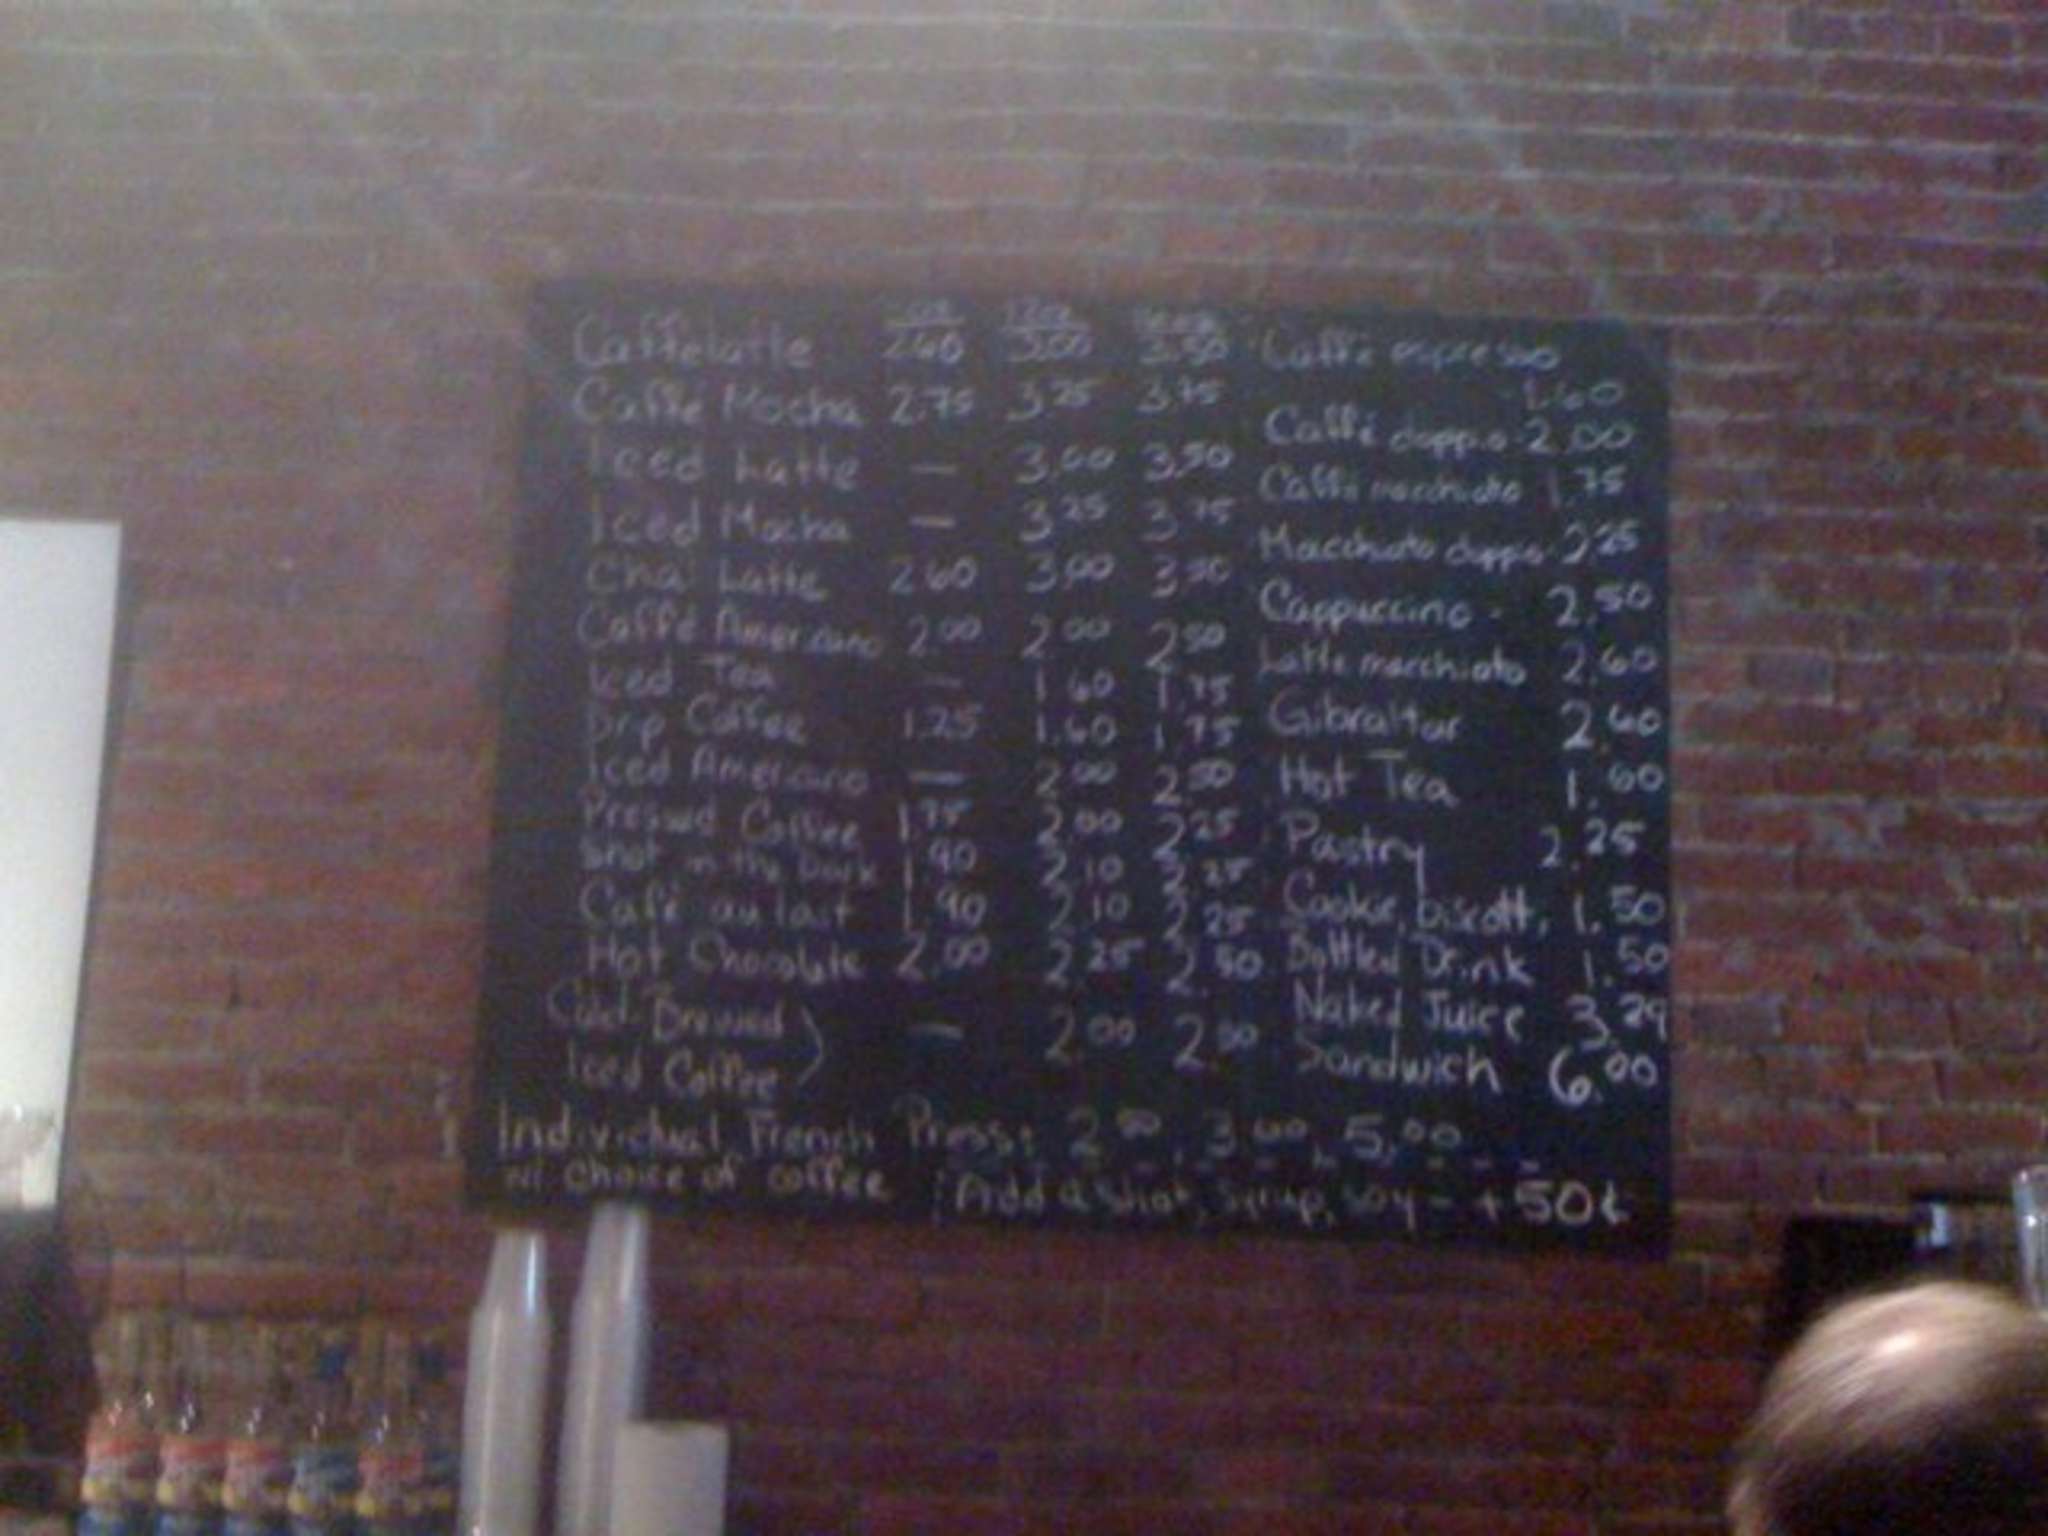 12oz
Caffélatte 2.60 3.00 3.50
Caffé Mocha 2.75 3.25 3.75
Iced Latte — 3.00 3.50
Iced Mocha — 3.25 3.75
Chai Latte 2.60 3.00 3.50
Caffé Americano 2.00 2.00 2.50
Iced Tea — 1.60 1.75
Drip Coffee 1.25 1.60 1.75
Iced Americano — 2.00 2.50
Pressed Coffee 1.75 2.00 2.25
Shot in the Dark 1.90 2.10 2.25
Café au lait 1.90 2.10 2.25
Hot Chocolate 2.00 2.25 2.50
Cold-Brewed
Iced Coffee — 2.00 2.00
Caffé espresso
1.60
Caffé doppio - 2.00
Caffé macchiato 1.75
Macchiato doppio 2.25
Cappuccino - 2.50
Latte macchiato 2.60
Gibraltar 2.60
Hot Tea 1.60
Pastry 2.25
Cookie, biscotti, 1.50
Bottled Drink 1.50
Naked Juice 3.29
Sandwich 6.00
Individual French Press: 2.50, 3.00, 5.00
w/ choice of coffee
Add a shot, syrup, soy - +50¢